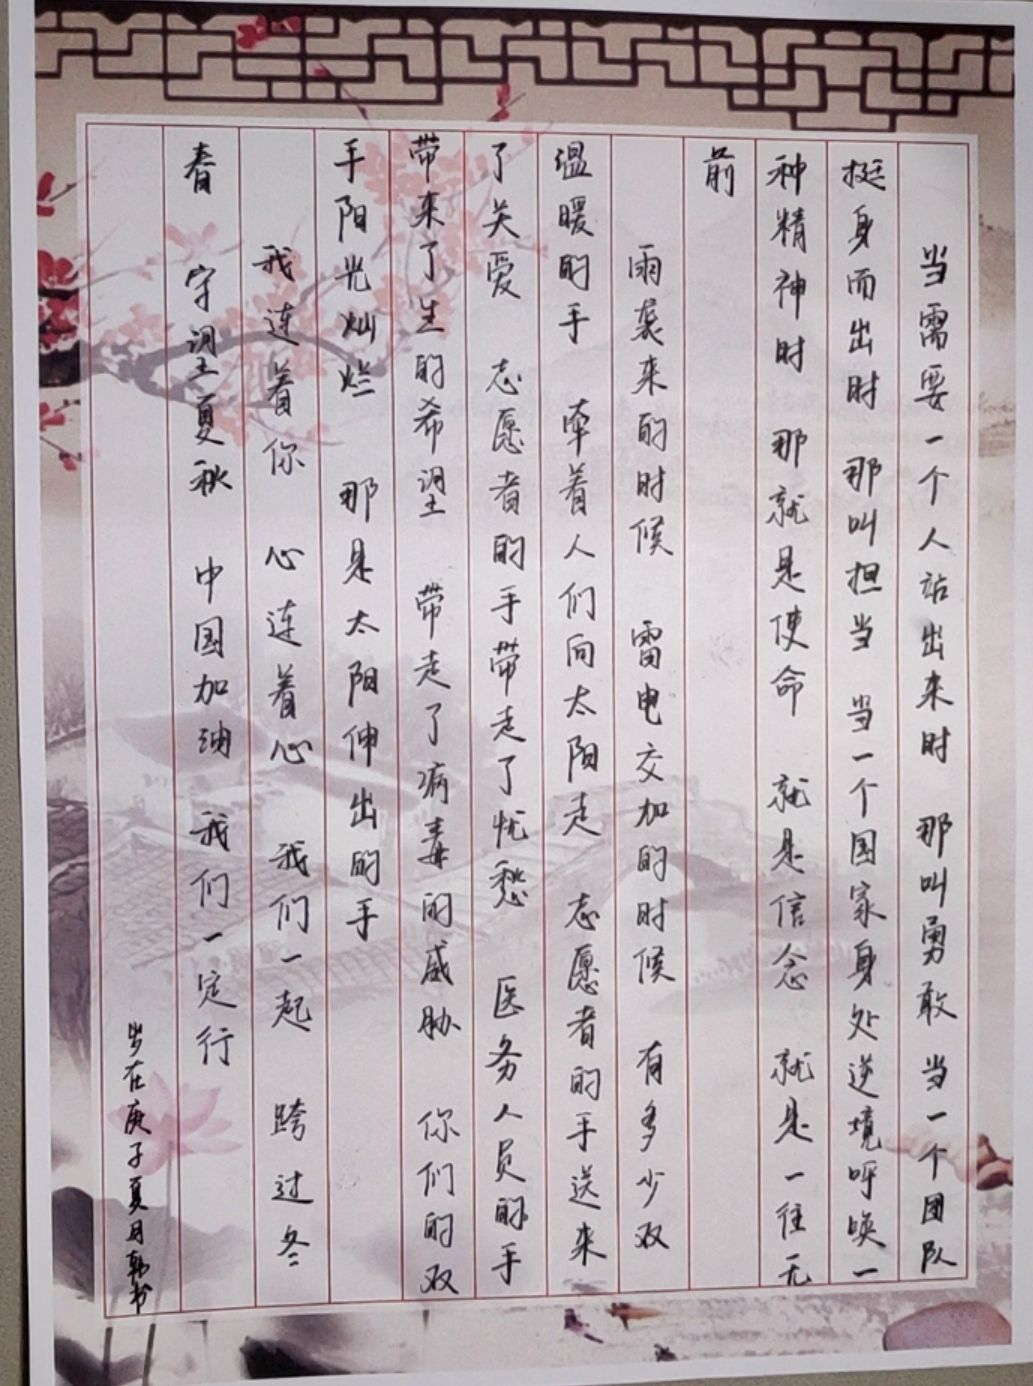 当需要一个人站出来时 那叫勇敢 当一个团队
挺身而出时 那叫担当 当一个国家身处逆境呼唤一
种精神时 那就是使命 就是信念 就是一往无
前
雨袭来的时候 雷电交加的时候 有多少双
温暖的手 牵着人们向太阳走 志愿者的手送来
了关爱 志愿者的手带走了忧愁 医务人员的手
带来了生的希望 带走了病毒的威胁 你们的双
手阳光灿烂 那是太阳伸出的手
我连着你 心连着心 我们一起 跨过冬
春 守望夏秋 中国加油 我们一定行
岁在庚子夏月韩书